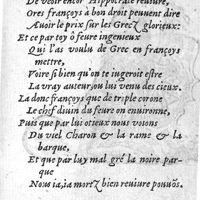 De veoir encor Hippocrate reuiure,
Ores françoys à bon droit peuuent dire
Auoir le prix sur les Grecz glorieux:
Et ce par toy ô feure ingenieux
Qui l'as voulu de Grec en françoys
mettre,
Voire si bien qu'on te iugeroit estre
La vray auteur, ou lui venu des cieux.
La donc françoys que de triple corone
Le chef diuin du feure on enuironne,
Puis que par lui otieux nous voions
Du viel Charon & la rame & la
barque,
Et que par luy mal gré la noire par-
que
Nous ia, ia mortz bien reuiure pouuõs.